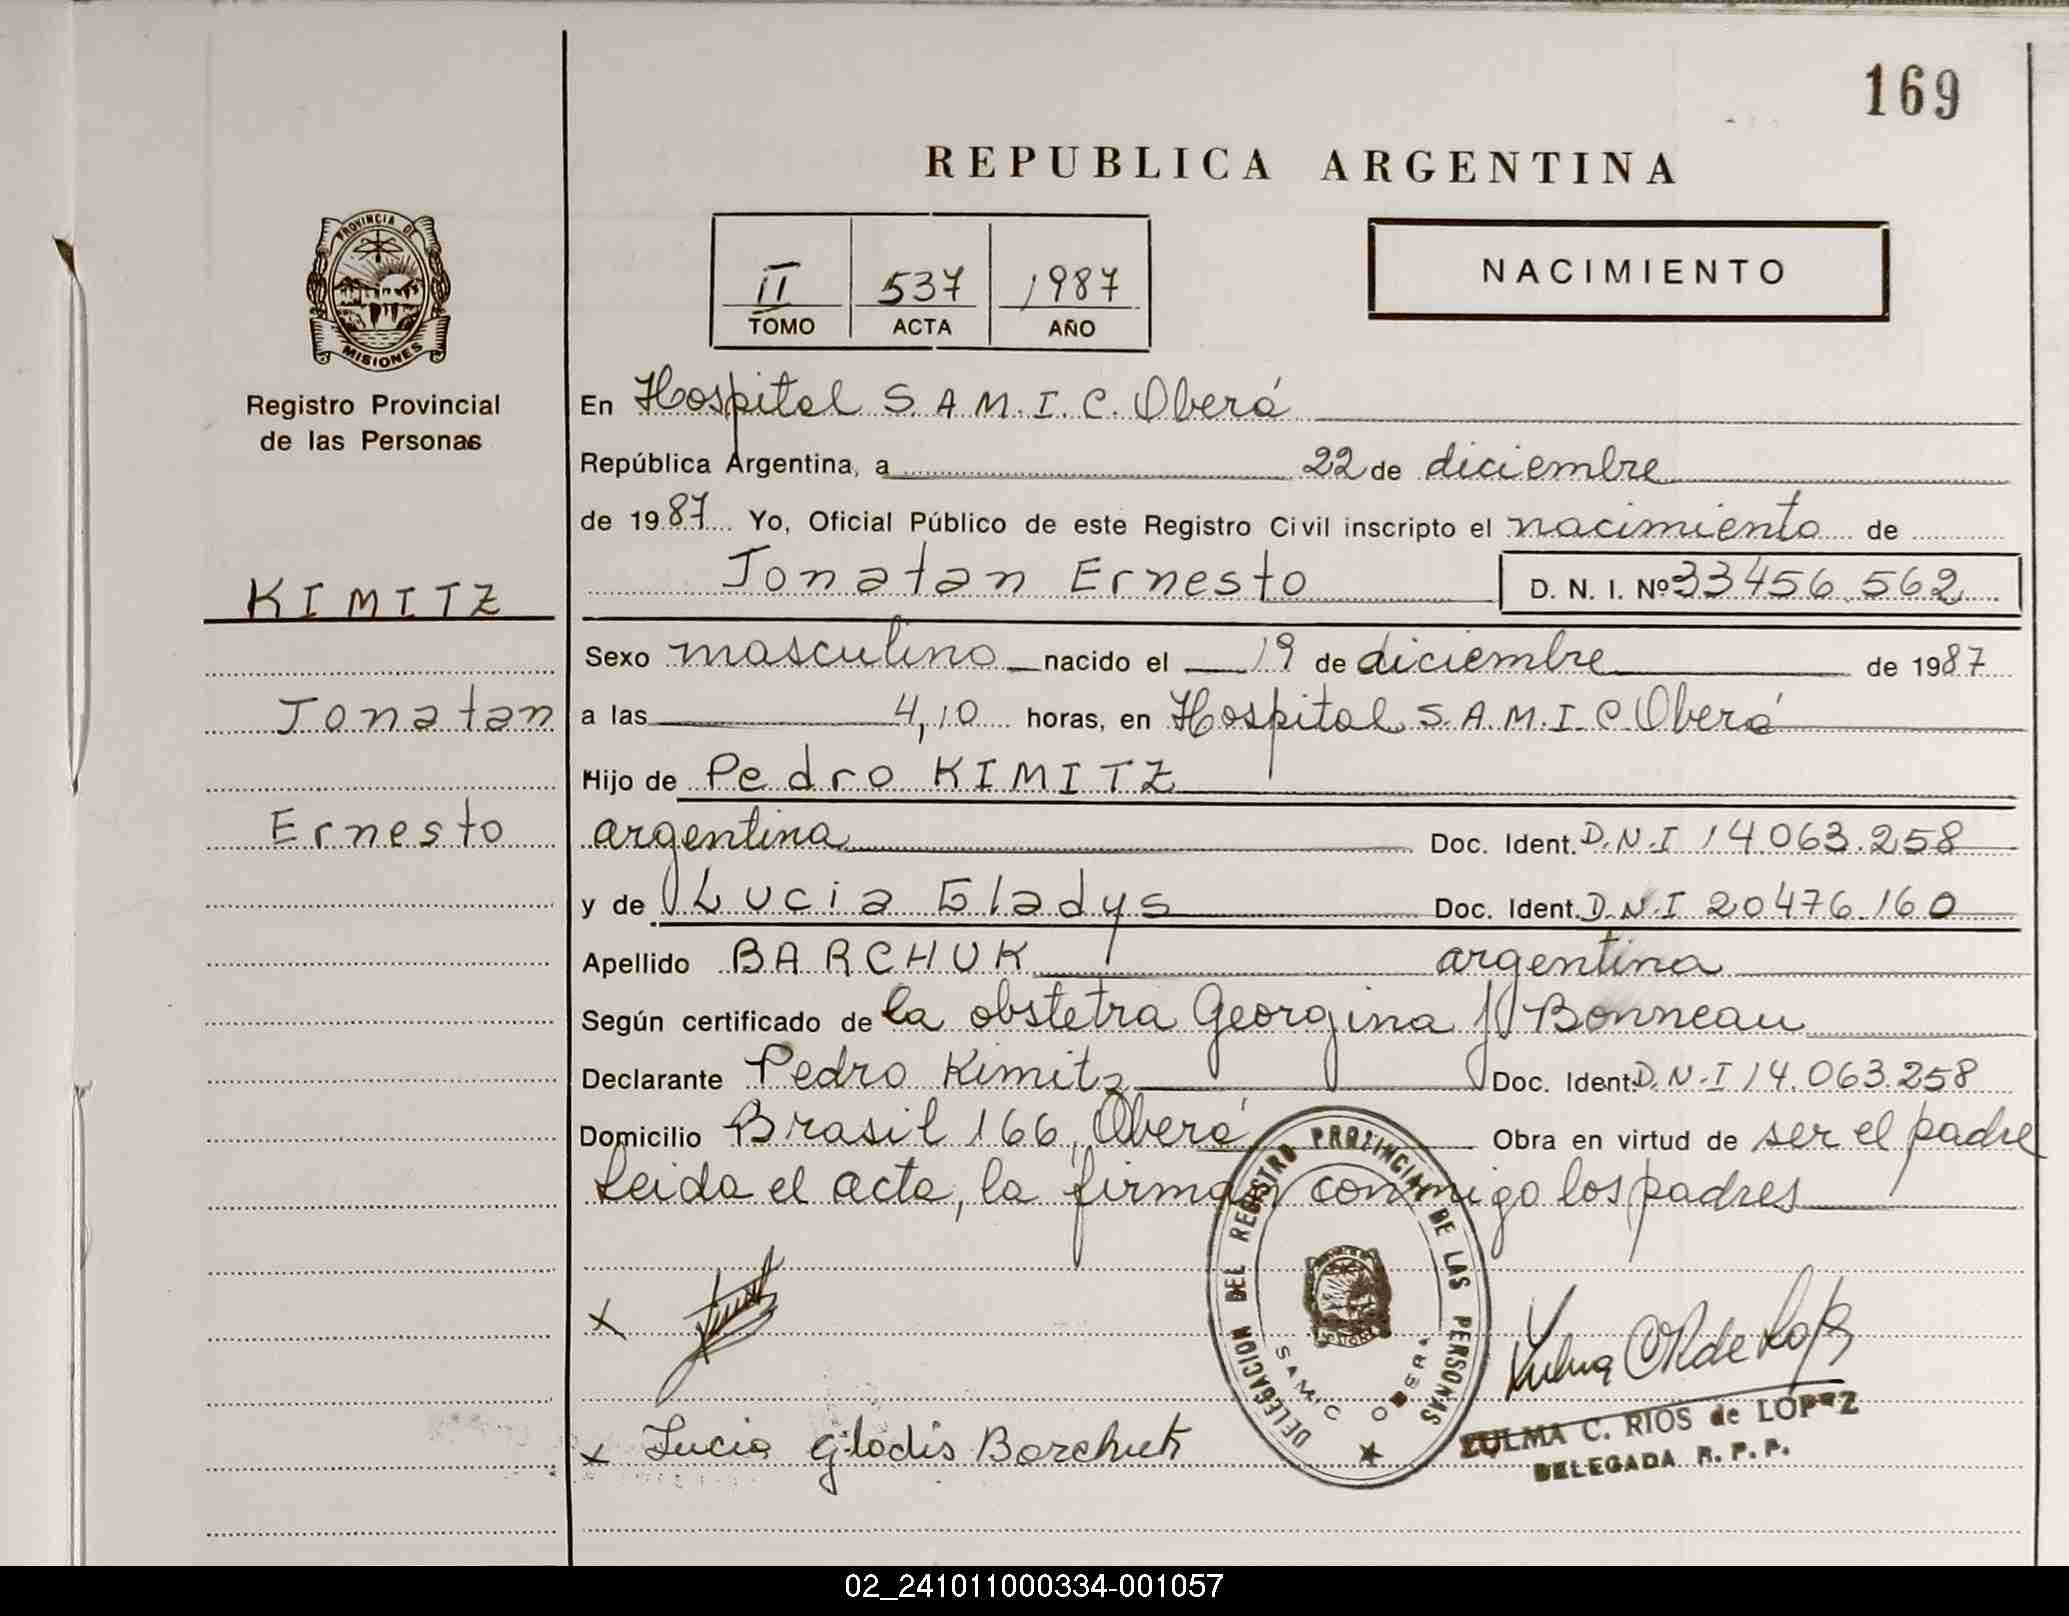 169
REPUBLICA ARGENTINA
PROVINCIA DE
MISIONES
Registro Provincial
de las Personas
II 537 1987
TOMO ACTA AÑO
NACIMIENTO
En Hospital S.A.M.I.C. Oberá
República Argentina, a 22 de diciembre
de 1987 Yo, Oficial Público de este Registro Civil inscripto el nacimiento de
KIMITZ
Jonatan Ernesto D. N. I. Nº 33456.562
Sexo masculino nacido el 19 de diciembre de 1987
Jonatan
a las 4,10 horas, en Hospital S.A.M.I.C. Oberá
Hijo de Pedro KIMITZ
Ernesto
argentina Doc. Ident. D.N.I 14.063.258
y de Lucia Gladys Doc. Ident. D.N.I 20476.160
Apellido BARCHUK argentina
Según certificado de la obstetra Georgina J Bonneau
Declarante Pedro Kimitz Doc. Ident. D.N.I 14.063.258
Domicilio Brasil 166, Oberá Obra en virtud de ser el padre
Leida el acta, la firman conmigo los padres
DELEGACION DEL REGISTRO PROVINCIAL DE LAS PERSONAS
SAMIC OBERA
x
x Lucia Gladis Barchuk
Zulma C R de Lopez
ZULMA C. RIOS de LOPEZ
DELEGADA R. P. P.
02_241011000334-001057